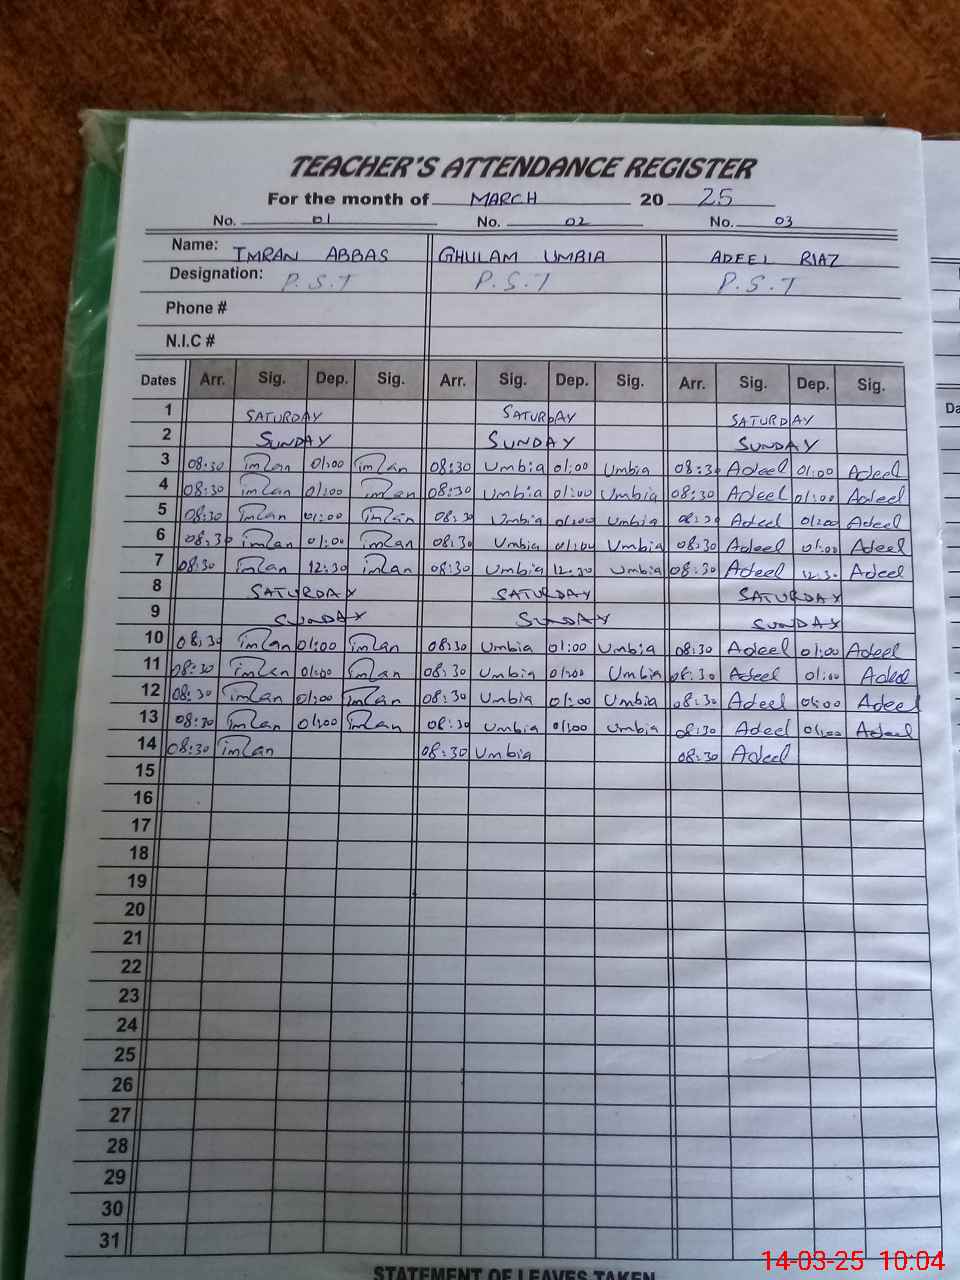 TEACHER'S ATTENDANCE REGISTER
For the month of MARCH 20 25
No. 01 No. 02 No. 03
Name: IMRAN ABBAS GHULAM UMBIA ADEEL RIAZ
Designation: P.S.T P.S.T P.S.T
Phone #
N.I.C #
Dates Arr. Sig. Dep. Sig. Arr. Sig. Dep. Sig. Arr. Sig. Dep. Sig.
1 SATURDAY SATURDAY SATURDAY
2 SUNDAY SUNDAY SUNDAY
3 08:30 imran 01:00 imran 08:30 Umbia 01:00 Umbia 08:30 Adeel 01:00 Adeel
4 08:30 imran 01:00 imran 08:30 Umbia 01:00 Umbia 08:30 Adeel 01:00 Adeel
5 08:30 imran 01:00 imran 08:30 Umbia 01:00 Umbia 08:30 Adeel 01:00 Adeel
6 08:30 imran 01:00 imran 08:30 Umbia 01:00 Umbia 08:30 Adeel 01:00 Adeel
7 08:30 imran 12:30 imran 08:30 Umbia 12:30 Umbia 08:30 Adeel 12:30 Adeel
8 SATURDAY SATURDAY SATURDAY
9 SUNDAY SUNDAY SUNDAY
10 08:30 imran 01:00 imran 08:30 Umbia 01:00 Umbia 08:30 Adeel 01:00 Adeel
11 08:30 imran 01:00 imran 08:30 Umbia 01:00 Umbia 08:30 Adeel 01:00 Adeel
12 08:30 imran 01:00 imran 08:30 Umbia 01:00 Umbia 08:30 Adeel 01:00 Adeel
13 08:30 imran 01:00 imran 08:30 Umbia 01:00 Umbia 08:30 Adeel 01:00 Adeel
14 08:30 imran 08:30 Umbia 08:30 Adeel
15
16
17
18
19
20
21
22
23
24
25
26
27
28
29
30
31
STATEMENT OF LEAVES TAKEN
14-03-25 10:04